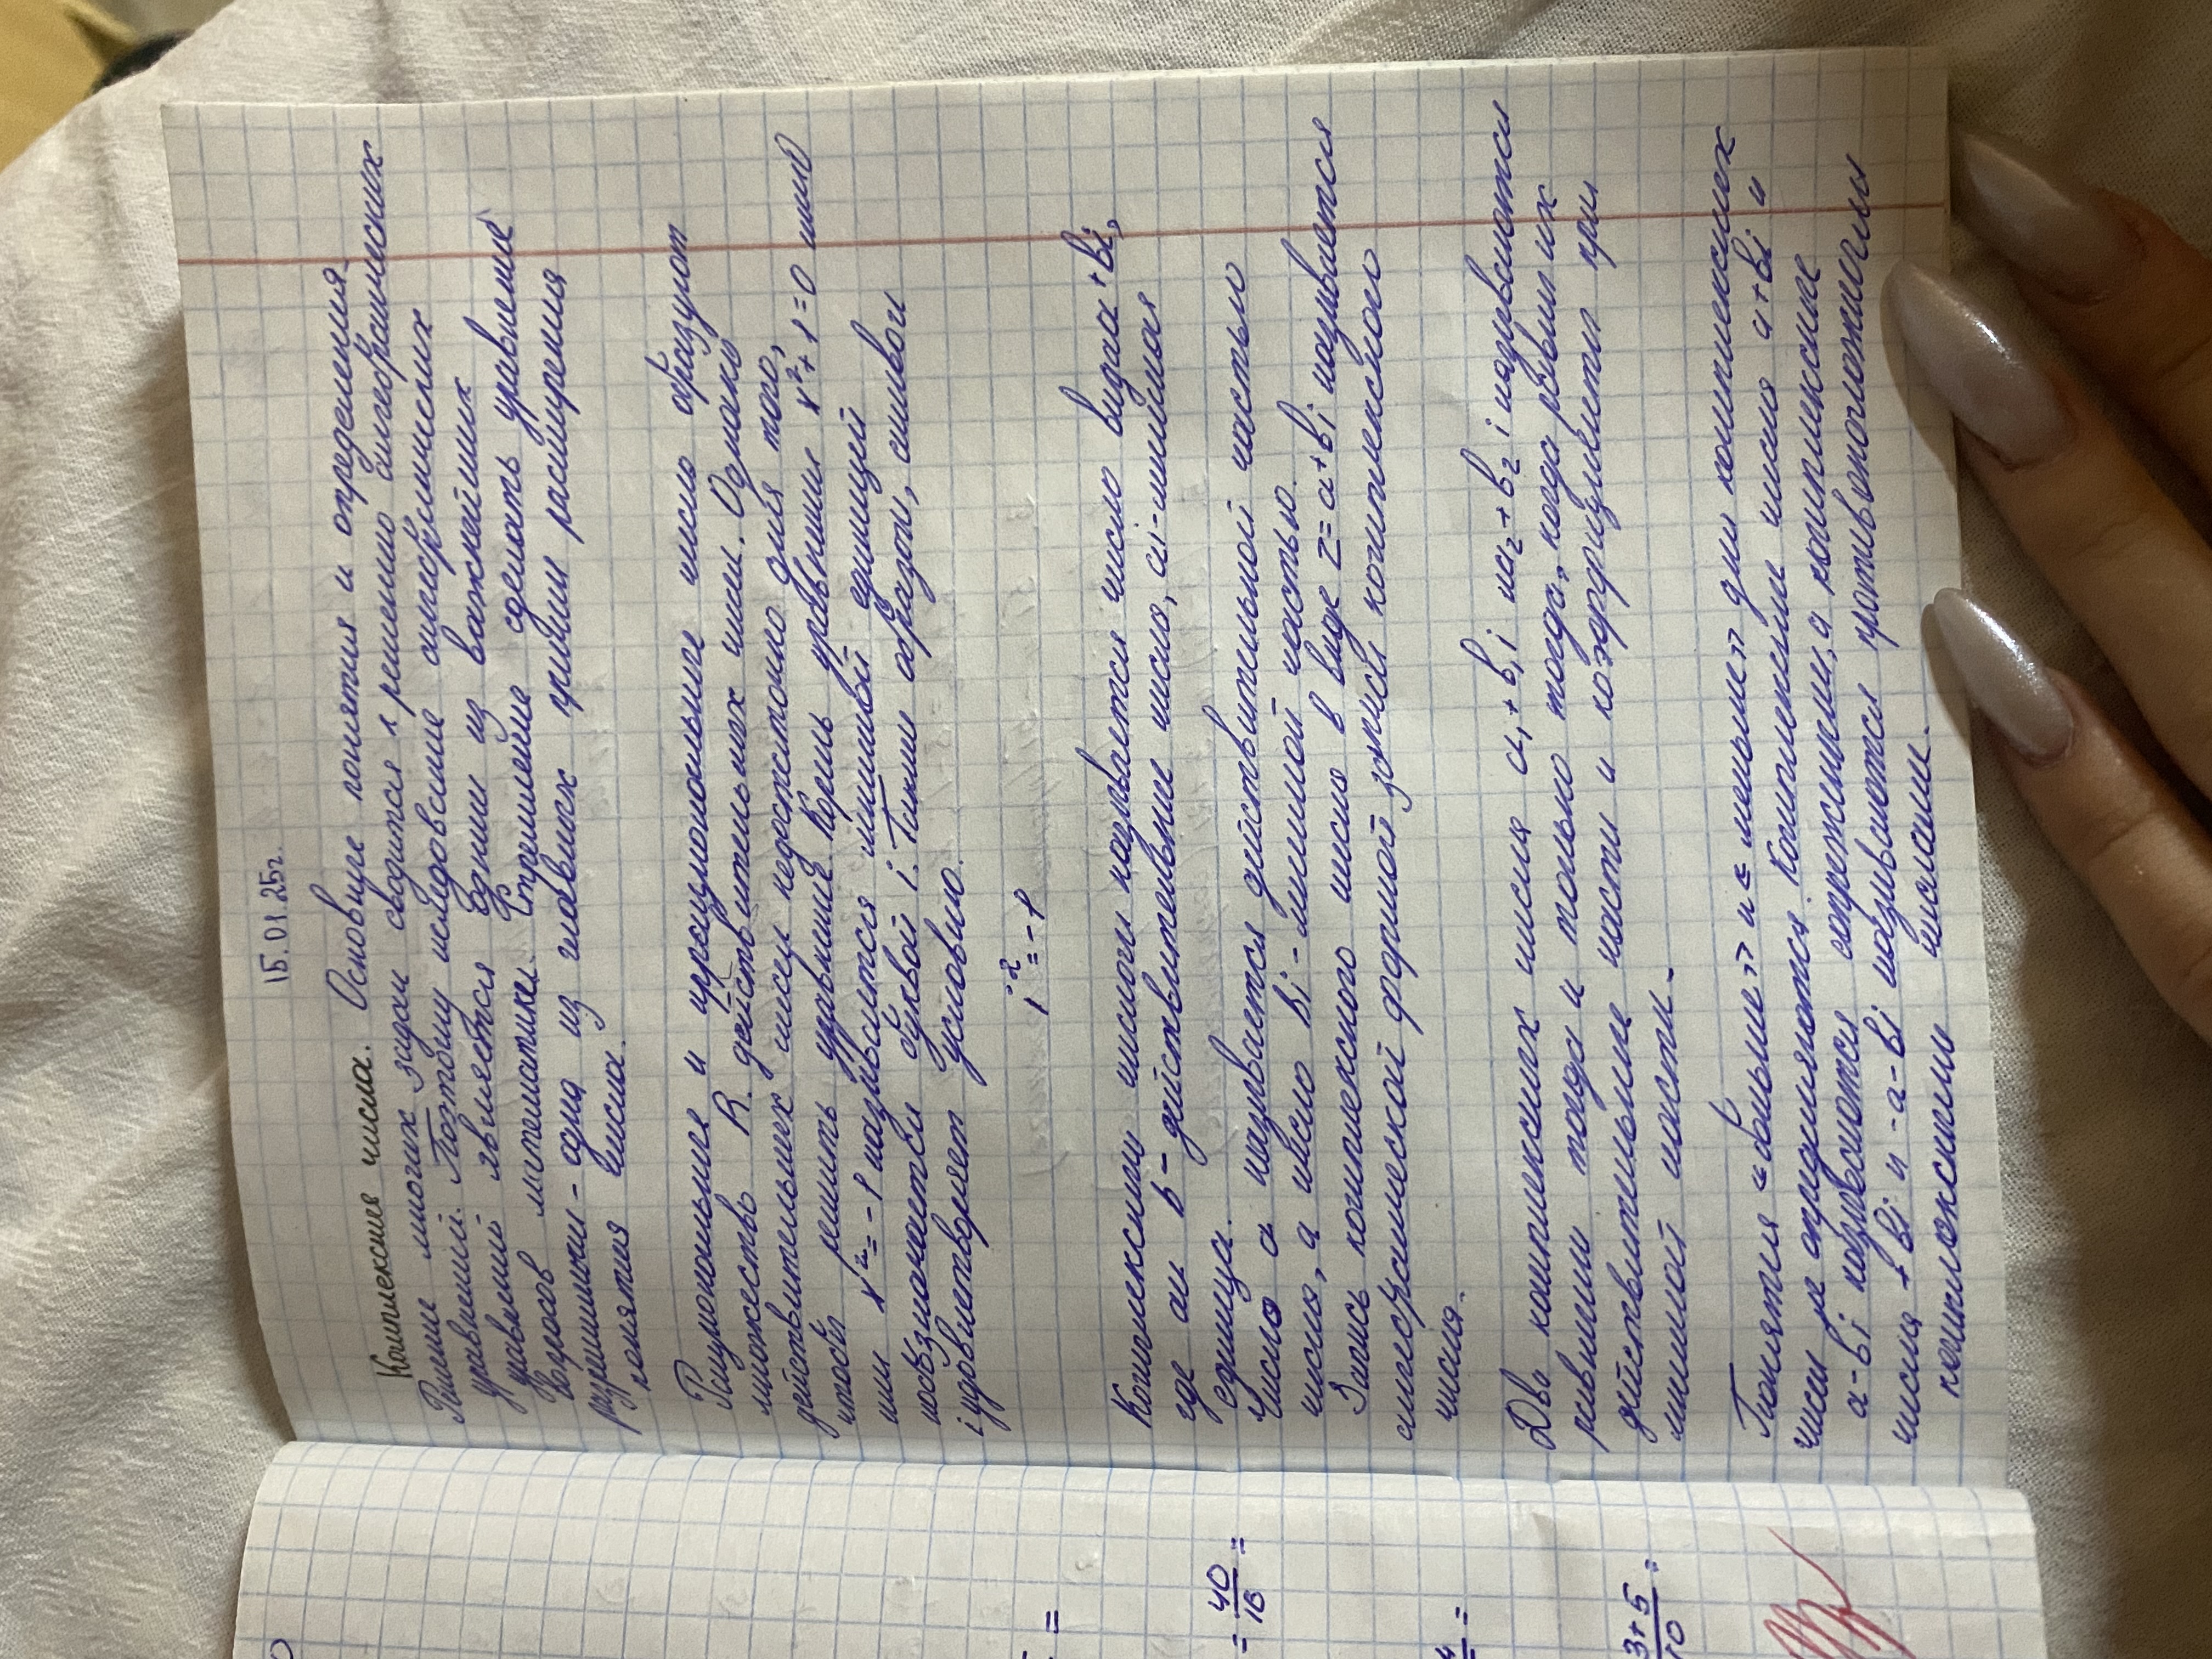 15.01.25г.
Комплексные числа. Основные понятия и определения
Решение многих задач сводится к решению алгебраических
уравнений. Поэтому исследование алгебраических
уравнений является одним из важнейших
вопросов математики. Стремление сделать уравнение
разрешимыми - одна из главных причин расширения
понятия числа.
Рациональные и иррациональные числа образуют
множество R действительных чисел. Однако
действительных чисел недостаточно для того,
чтобы решить уравнение. Корень уравнения x²+1=0 или
или x²=-1 называется мнимой единицей
и обозначается буквой i. Таким образом, символ
i удовлетворяет условию.
i²=-1
Комплексным числом называется число вида a+bi,
где a и b - действительные числа, а i - мнимая
единица.
Число a называется действительной частью
числа, а число bi - мнимой частью.
Запись комплексного числа в виде z=a+bi называется
алгебраической формой записи комплексного
числа.
Два комплексных числа a₁+b₁i и a₂+b₂i называются
равными тогда и только тогда, когда равны их
действительные части и коэффициенты при
мнимой части.
Понятия «больше» и «меньше» для комплексных
чисел не определяются. Комплексные числа a+bi и
a-bi называются сопряженными, а комплексные
числа a+bi и -a-bi называются противоположными
комплексными числами.
=
= 40/16 =
4 =
3+5/10 =